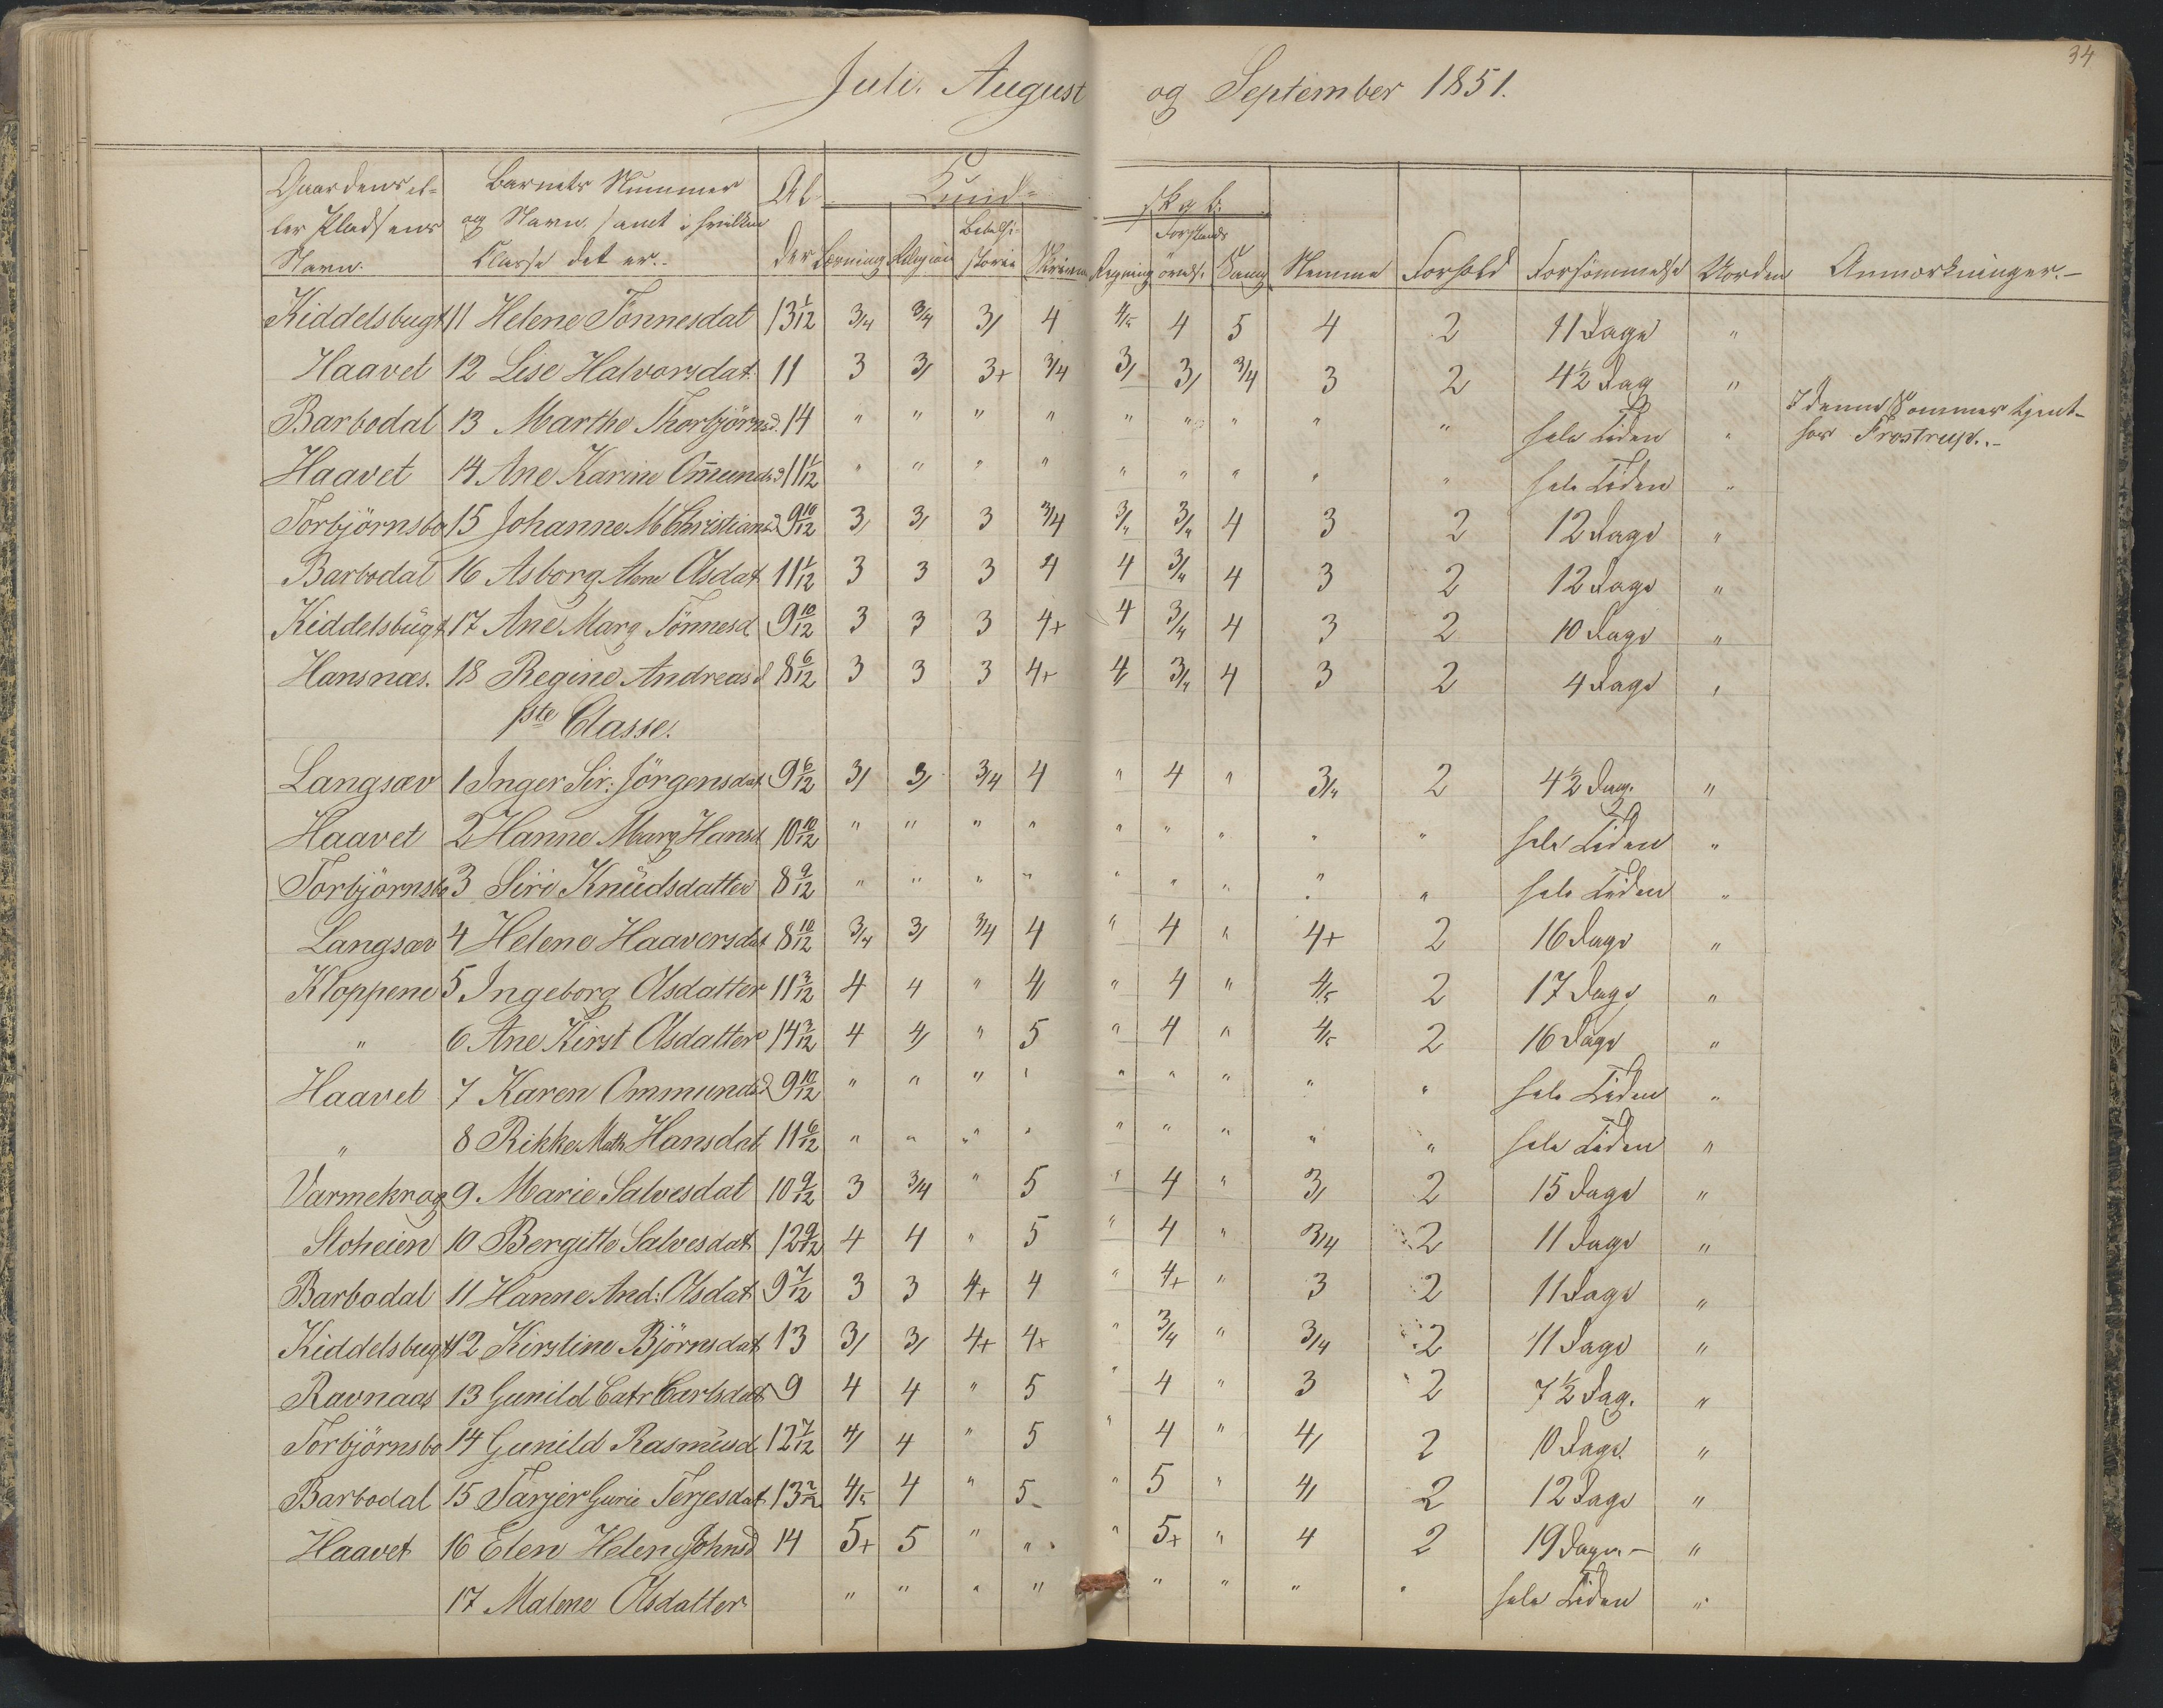 34
Juli. August og September 1851.
Gaardens el- Barnets Nummer Al- Kund- skab.
ler Pladsens og Navn, samt i hvilken Bibelhi- Forstands
Navn. Classe det er. der Læsning Religion storie Skrivn Regning övelse Sang Nemme Forhold Forsömmelse Uorden Anmærkninger.-
Kiddelsbugt 11 Helene Tönnesdat 13 1/12 3/4 3/4 3/ 4 4/5 4 5 4 2 11 Dage "
Haavet 12 Lise Halvorsdat. 11 3 3/ 3+ 3/4 3/ 3/ 3/4 3 2 4½ Dag "
Barbodal 13 Marthe Thorbjörnsd. 14 " " " " " " " " " hele Tiden " I denne Sommer tjent
hos Frostrup.-
Haavet 14 Ane Karine Om̄unds 11 1/12 " " " " " " " " " hele Tiden "
Torbjörnsbo 15 Johanne M Christiansd 9 10/12 3/ 3/ 3 3/4 3/4 3/4 4 3 2 12 Dage "
Barbodal 16 Asborg Alene Olsdat 11 1/12 3 3 3 4 4 3/4 4 3 2 12 Dage "
Kiddelsbugt 17 Ane Marg Tönnesd 9 10/12 3 3 3 4+ 4 3/4 4 3 2 10 Dage "
Hansnæs. 18 Regine Andreasd 8 6/12 3 3 3 4+ 4/ 3/4 4 3 2 4 Dage "
1ste Classe.
Langsæv 1 Inger Sir: Jörgensdat 9 6/12 3/ 3/ 3/4 4 " 4 " 3/4 2 4½ Dag. "
Haavet 2 Hanne Marg Hansd 10 10/12 " " " " " " " " " hele Tiden "
Torbjörnsbo 3 Siri Knudsdatter 8 9/12 " " " " " " " " " hele Tiden "
Langsæv 4 Helene Haaversdat 8 10/12 3/4 3/ 3/4 4 " 4 " 4+ 2 16 Dage "
Kloppene 5 Ingeborg Olsdatter 11 3/12 4 4 " 4/ " 4 " 4/5 2 17 Dage "
" 6 Ane Kirst Olsdatter 14 3/12 4 4/ " 5 " 4 " 4/5 2 16 Dage "
Haavet 7 Karen Ommundsd 9 10/12 " " " " " " " " " hele Tiden "
" 8 Rikke Math Hansdat 11 6/12 " " " " " " " " " hele Tiden "
Varmekrog 9. Marie Salvesdat 10 9/12 3 3/4 " 5 " 4 " 3/ 2 15 Dage "
Stoheien 10 Bergitte Salvesdat 12 9/12 4 4 " 5 " 4 " 3/4 2 11 Dage "
Barbodal 11 Hanne And: Olsdat 9 7/12 3 3 4+ 4 " 4+ " 3 2 11 Dage "
Kiddelsbugt 12 Kirstine Björnsdat 13 3/ 3/ 4+ 4+ " 3/4 " 3/4 2 11 Dage "
Ravnaas 13 Gunild Catr Carlsdat 9 4 4 " 5 " 4 " 3 2 7½ Dag. "
Torbjörnsbo 14 Gunild Rasmusd 12 7/12 4/ 4 " 5 " 4 " 4/ 2 10 Dage. "
Barbodal 15 Tarjer Gurie Terjesdat 13 2/12 4/5 4 " 5 " 5 " 4/ 2 12 Dage "
Haavet 16 Elen Helen Johnsd 14 5+ 5 " " " 5+ " 4 2 19 Dage.- "
17 Malene Olsdatter " " " " " " " " hele Tiden "